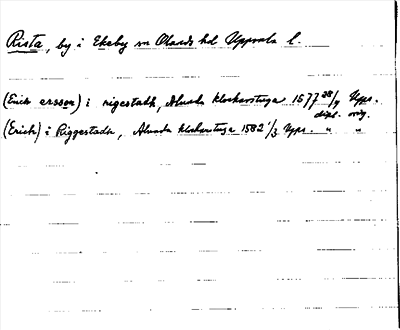 Rista, by i Ekeby sn Olands hd Uppsala l.
(Erich ersson) i rigestadh, Alunda klockarstuga 1577 28/4 Upps.
dipl. orig.
(Erich) i Riggestadh, Alunda klockarstuga 1582 1/3 Upps. " "